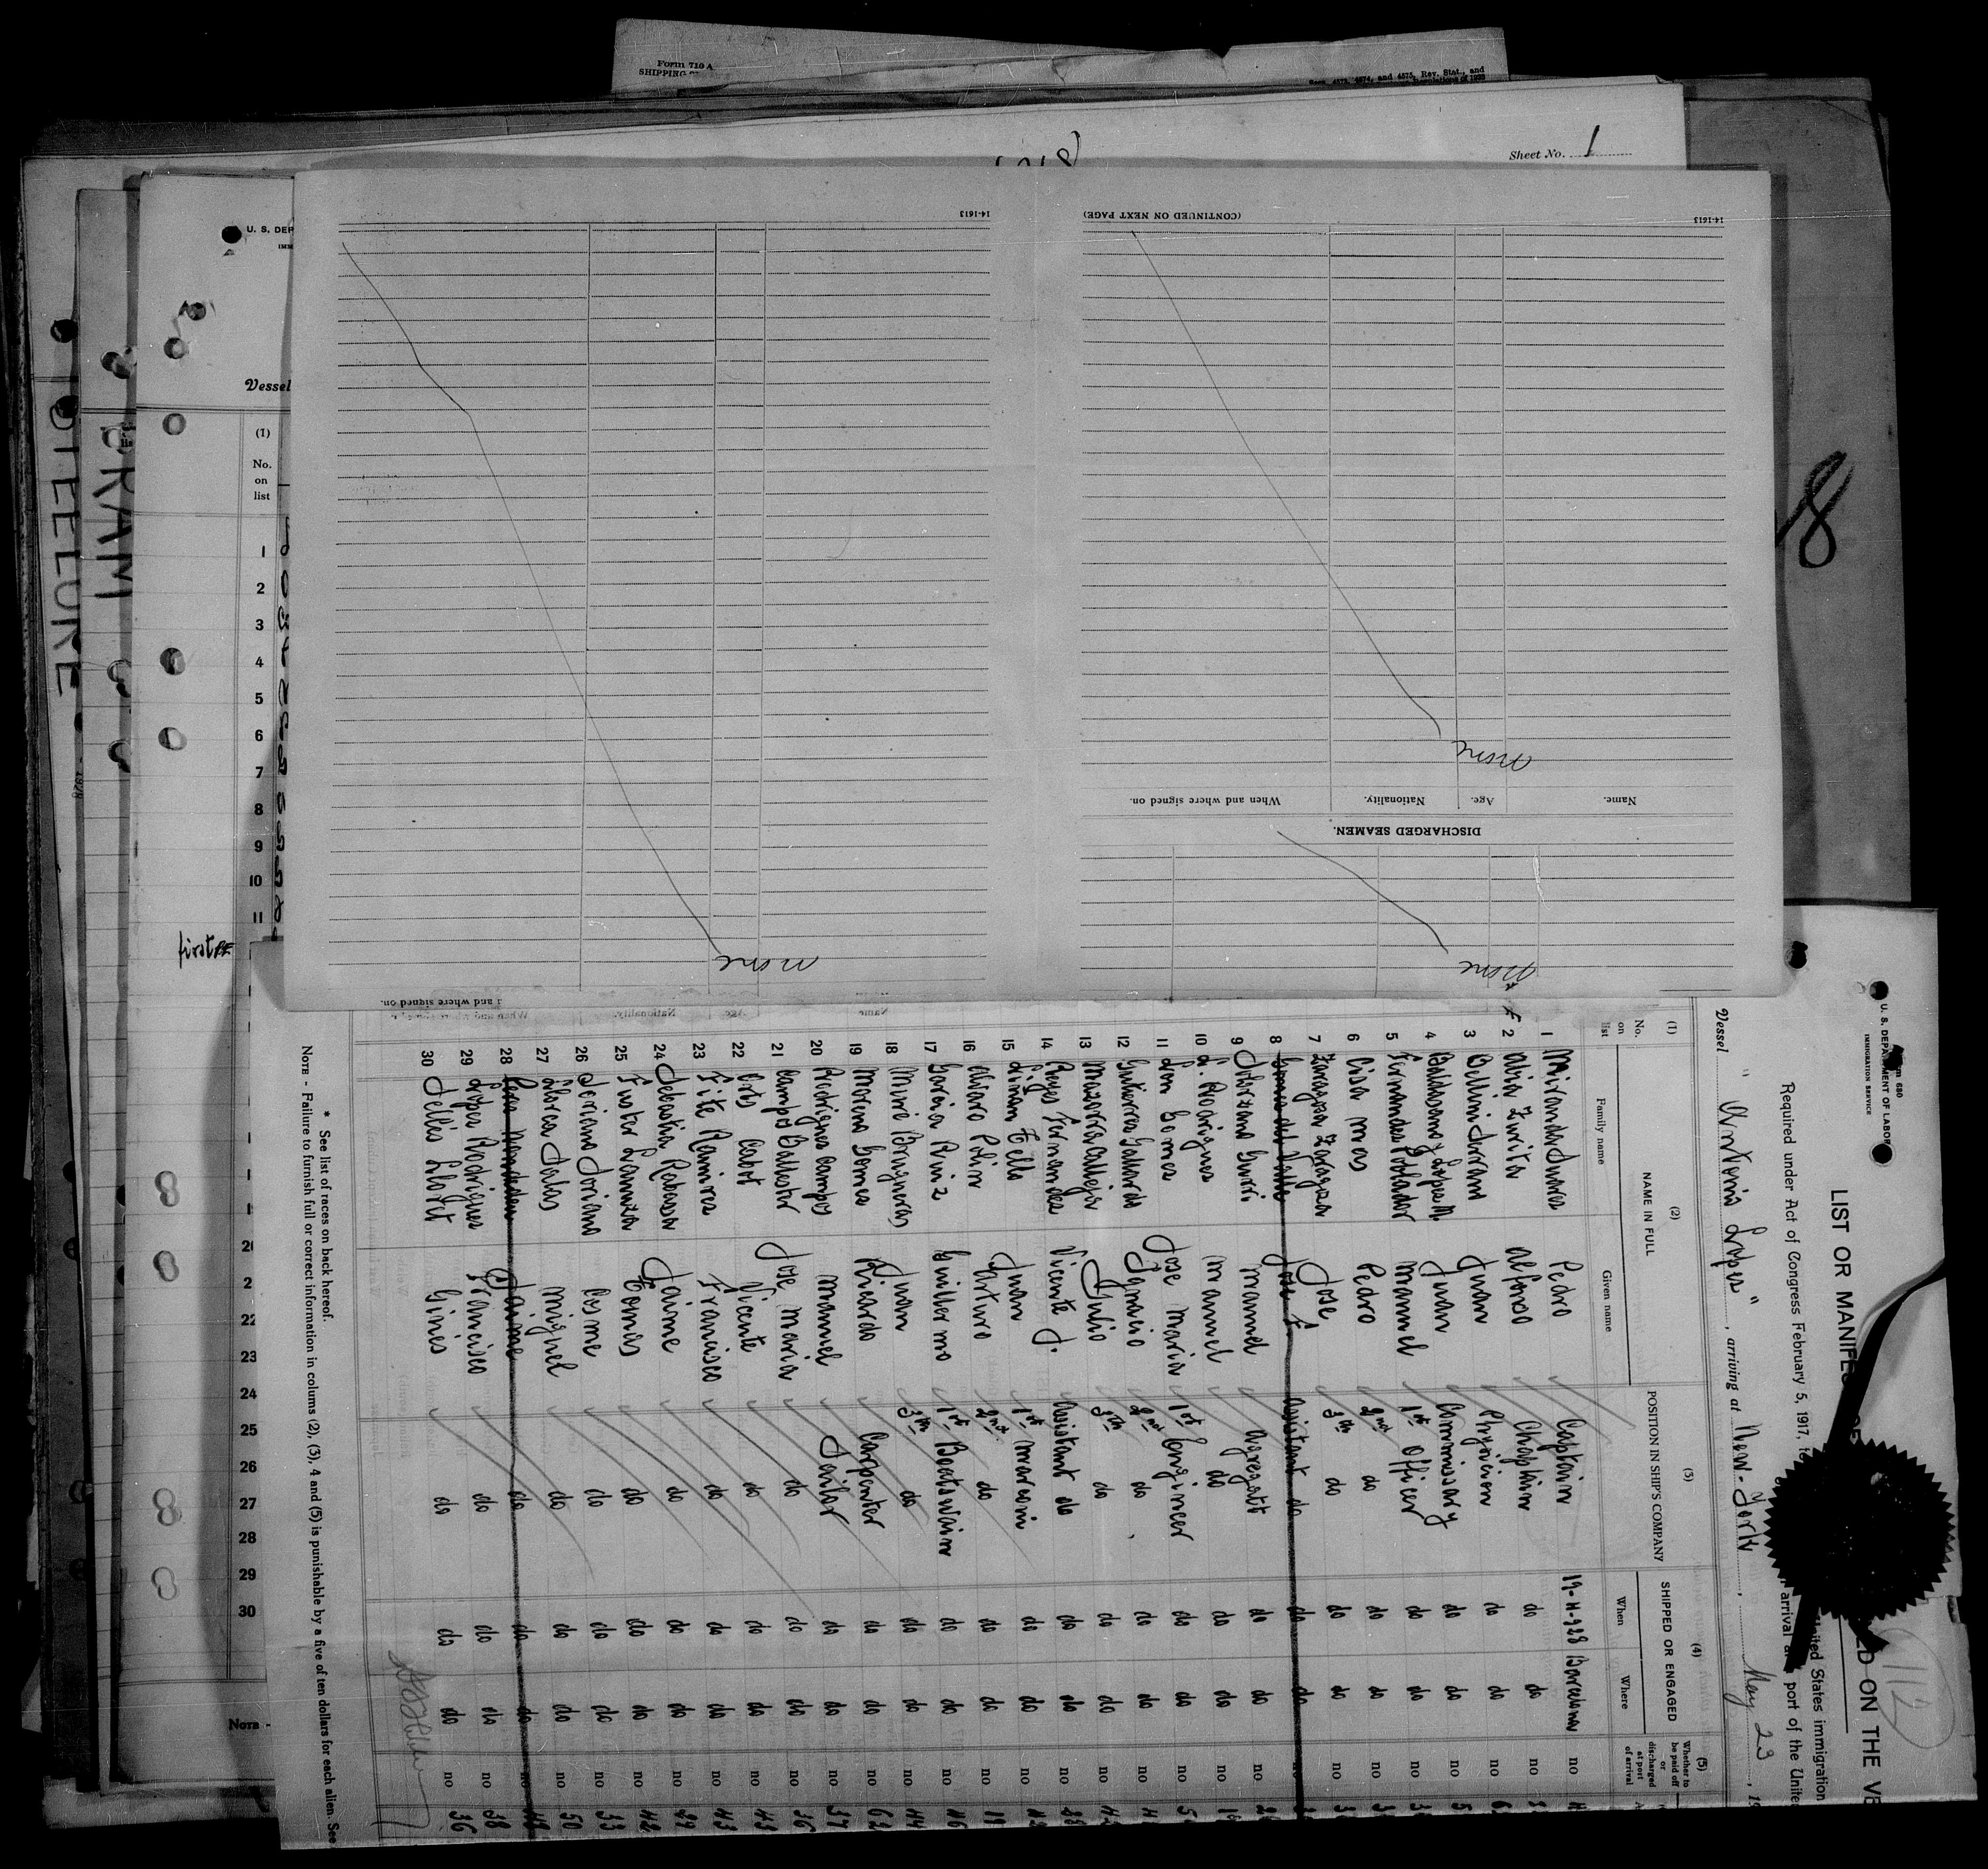 Form 710 A
SHIPPING
4573, 4574, and 4575, Rev. Stat., and
Regulations of 1923
Sheet No. 1
14-1613
(CONTINUED ON NEXT PAGE)
14-1613
none
Name.
Age.
Nationality.
When and where signed on.
DISCHARGED SEAMEN.
none
none
and where signed on.
Nationality.
Age
Name
18
DIEELUKE
BRAM
1928
U. S. DEP
IMM
Vessel
(1)
No.
on
list
1
2
3
4
5
6
7
8
9
10
11
first
22
23
24
25
26
27
28
29
30
NOTE -
Form 680
U. S. DEPARTMENT OF LABOR
IMMIGRATION SERVICE
112
LIST OR MANIFES
ED ON THE VE
Required under Act of Congress February 5, 1917, to
United States immigration
arrival at port of the United
Vessel "Antonio Lopez", arriving at New-York, May 23, 19
(1) No. on list
(2) NAME IN FULL
Family name
Given name
(3) POSITION IN SHIP'S COMPANY
(4) SHIPPED OR ENGAGED
When
Where
(5) Whether to be paid off or discharged at port of arrival
1 Miranda Suares Pedro Captain 19-4-928 Barcelona no
2 Adia Zurita Alfonso Chaplain do do no
3 Bellini Serrano Juan Physician do do no
4 Baldasano y Lopes M. Juan Commissary do do no
5 Fernandes Poblador Manuel 1st Officer do do no
6 Cisa Mas Pedro 2nd do do do no
7 Zaragoza Zaragoza Jose 3th do do do no
8 Gomes del Valle Jose F. Assistant do do do no
9 Solorzano Gurri Manuel Agregatt do do no
10 Rodrigues Manuel do do do no
11 Gomes Jose Maria 1st Engineer do do no
12 Gutierres Gallardo Ignacio 2nd do do do no
13 Mazorra Calleja Julio 3th do do do no
14 Reyes Fernandes Vicente J. Assistant do do do no
15 Linan Tello Juan 1st Marconi do do no
16 Alvaro Polin Arturo 2nd do do do no
17 Garcia Ruiz Guillermo 1st Boatswain do do no
18 Miro Brugueras Juan 3th do do do no
19 Moreno Gomes Ricardo Carpenter do do no
20 Rodrigues Campos Manuel Sailor do do no 37
21 Campos Ballester Jose Maria do do do no 36
22 Orts Cabot Vicente do do do no 43
23 Fite Ramires Francisco do do do no 43
24 Sebastia Rabassa Jaime do do do no 29
25 Fuster Lanuza Tomas do do do no 42
26 Soriano Soriano Cosme do do do no 33
27 Llorca Salas Miguel do do do no 50
28 Peres Jaime do do do no
29 Lopes Rodrigues Francisco do do do no 38
30 Selles Lloret Gines do do do no 36
* See list of races on back hereof.
NOTE - Failure to furnish full or correct information in colums (2), (3), 4 and (5) is punishable by a five of ten dollars for each alien. See